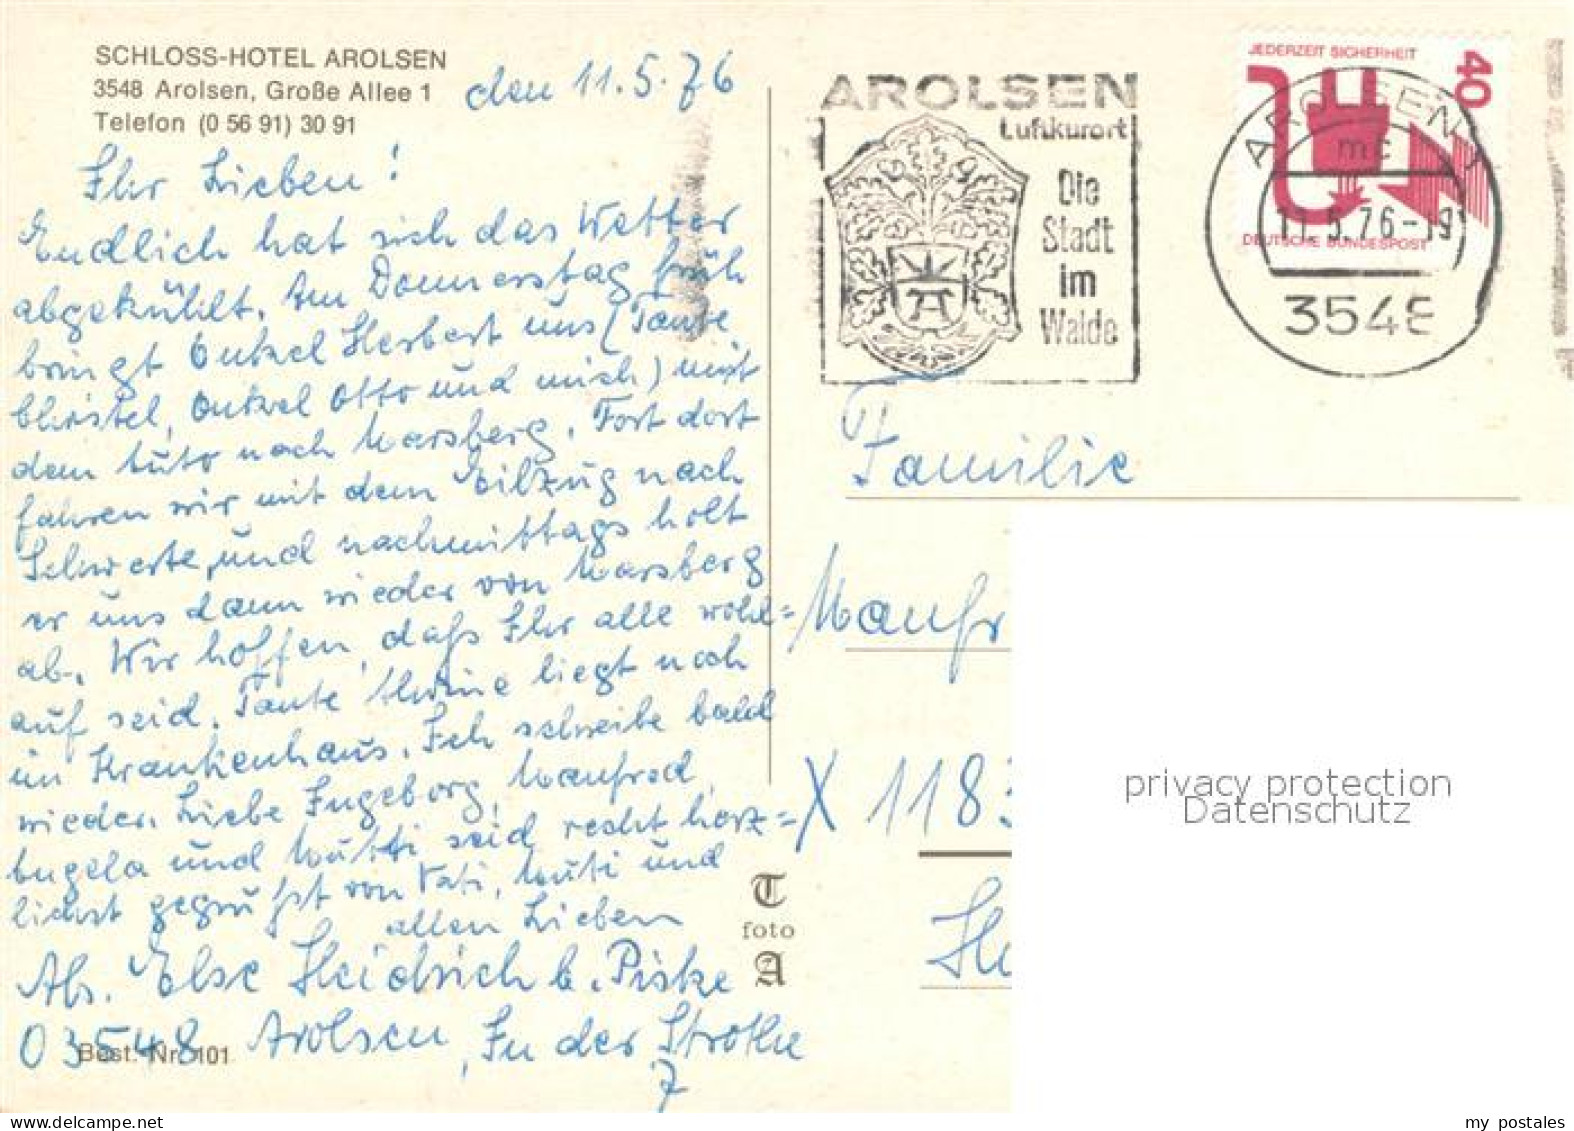 SCHLOSS-HOTEL AROLSEN
3548 Arolsen, Große Allee 1
Telefon (0 56 91) 30 91
den 11.5.76
Ihr Lieben!
Endlich hat sich das Wetter
abgekühlt. Am Donnerstag früh
bringt Onkel Herbert uns (Tante
Christel, Onkel Otto und mich) mit
dem Auto nach Marsberg. Fort dort
fahren wir mit dem Eilzug nach
Schwerte, und nachmittags holt
er uns dann wieder von Marsberg
ab. Wir hoffen, daß Ihr alle wohl=
auf seid. Tante liegt noch
im Krankenhaus. Ich schreibe bald
wieder. Liebe Ingeborg, Manfred,
und Mutti seid recht herz=
lichst gegrüßt von Vati, Muti und
allen Lieben
Abs. Else Heidrich b. Piske
03548 Arolsen, In der Strothe
7
Best. Nr. 101
T
foto
A
AROLSEN
Luftkurort
Die
Stadt
im
Walde
JEDERZEIT SICHERHEIT
40
DEUTSCHE BUNDESPOST
AROLSEN 1
mc
11.5.76-19
3548
Familie
Manfr
X 1183
He
privacy protection
Datenschutz
my postales